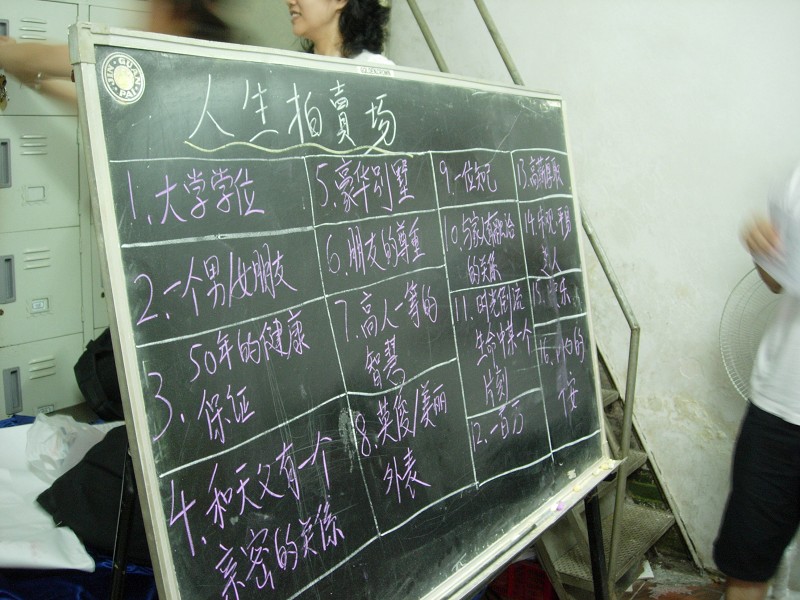 JIN GUAN PAI
人生拍賣場
1. 大学学位
2. 一个男/女朋友
3. 50年的健康
保证
4. 和天父有一个
亲密的关係
5. 豪华别墅
6. 朋友的尊重
7. 高人一等的
智慧
8. 英俊/美丽
外表
9. 一位知己
10. 与家人有融洽
的关系
11. 时光倒流
生命中某一个
片刻
12. 一百万
13. 高薪
14.
15. 乐
16. 的
安